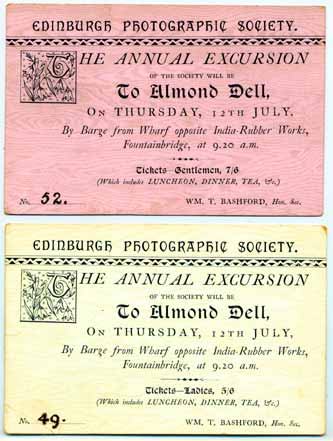 EDINBURGH PHOTOGRAPHIC SOCIETY.
THE ANNUAL EXCURSION
OF THE SOCIETY WILL BE
To Almond Dell,
ON THURSDAY, 12TH JULY.
By Barge from Wharf opposite India-Rubber Works,
Fountainbridge, at 9.20 a.m.
Tickets—Gentlemen, 7/6
(Which includes LUNCHEON, DINNER, TEA, &c.)
No. 52. WM. T. BASHFORD, Hon. Sec.
EDINBURGH PHOTOGRAPHIC SOCIETY.
THE ANNUAL EXCURSION
OF THE SOCIETY WILL BE
To Almond Dell,
ON THURSDAY, 12TH JULY,
By Barge from Wharf opposite India-Rubber Works,
Fountainbridge, at 9.20 a.m.
Tickets—Ladies, 5/6
(Which includes LUNCHEON, DINNER, TEA, &c.)
No. 49. WM. T. BASHFORD, Hon. Sec.